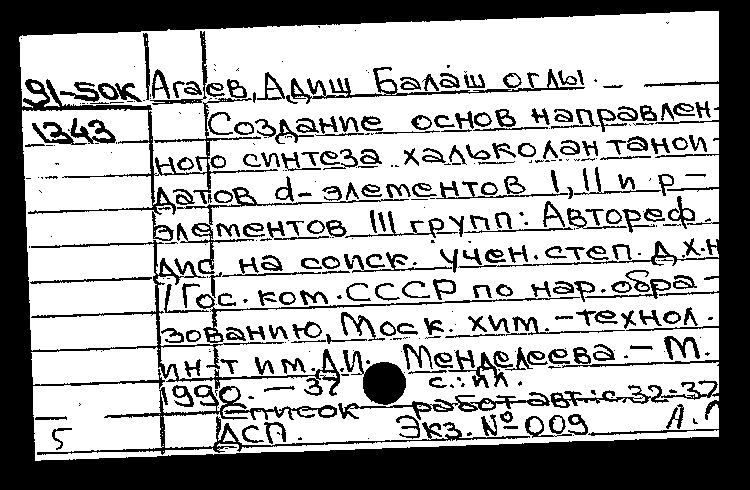 91-50К Агаев, Адиш Балаш оглы.
1343 Создание основ направлен-
ного синтеза халькоlantанои-
датов d-элементов I, II и p-
элементов III групп: Автореф.
дис. на соиск. учен. степ. д.х.н
/ Гос. ком. СССР по нар. обра-
зованию, Моск. хим.-технол.
ин-т им. Д.И. Менделеева. - М.
1990. - 37 с.: ил.
Список работ авт.: с. 32-37
5 ДСП. Экз. № 009 А.